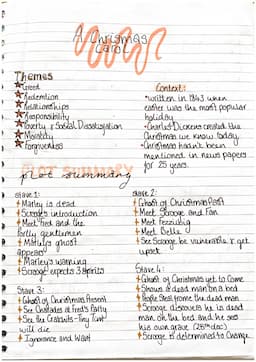 A Christmas
Carol
Themes
Greed
Redemption
Relationships
Responsibility
Poverty + Social
Morality
Forgiveness
Context:
•written in 1843 when
easter was the most popular
holiday
•Charles Dickens created the
Christmas we know today
•Christmas hadn't been
mentioned in news papers
for 25 years.
PLOT SUMMARY
plot summary
Stave 1:
Marley is dead
Scrooge's introduction
Meet Fred and the
portly gentlemen
Marley's ghost
appears
Marley's warning
Scrooge expects 3 spirits
Stave 2:
Ghost of Christmas Past
Meet Scrooge and Fan
Meet Fezziwig
Meet Belle
See Scrooge be vulnerable + get
upset
Stave 3:
Ghost of Christmas Present
See Christmas at Fred's Party
See the Cratchits - Tiny Tim
will die
Ignorance and Want
Stave 4:
Ghost of Christmas Yet to Come
Shows a dead man on a bed
People steal from the dead man
Scrooge discovers he is dead
man on the bed and he sees
his own grave (25th dec)
Scrooge is determined to change